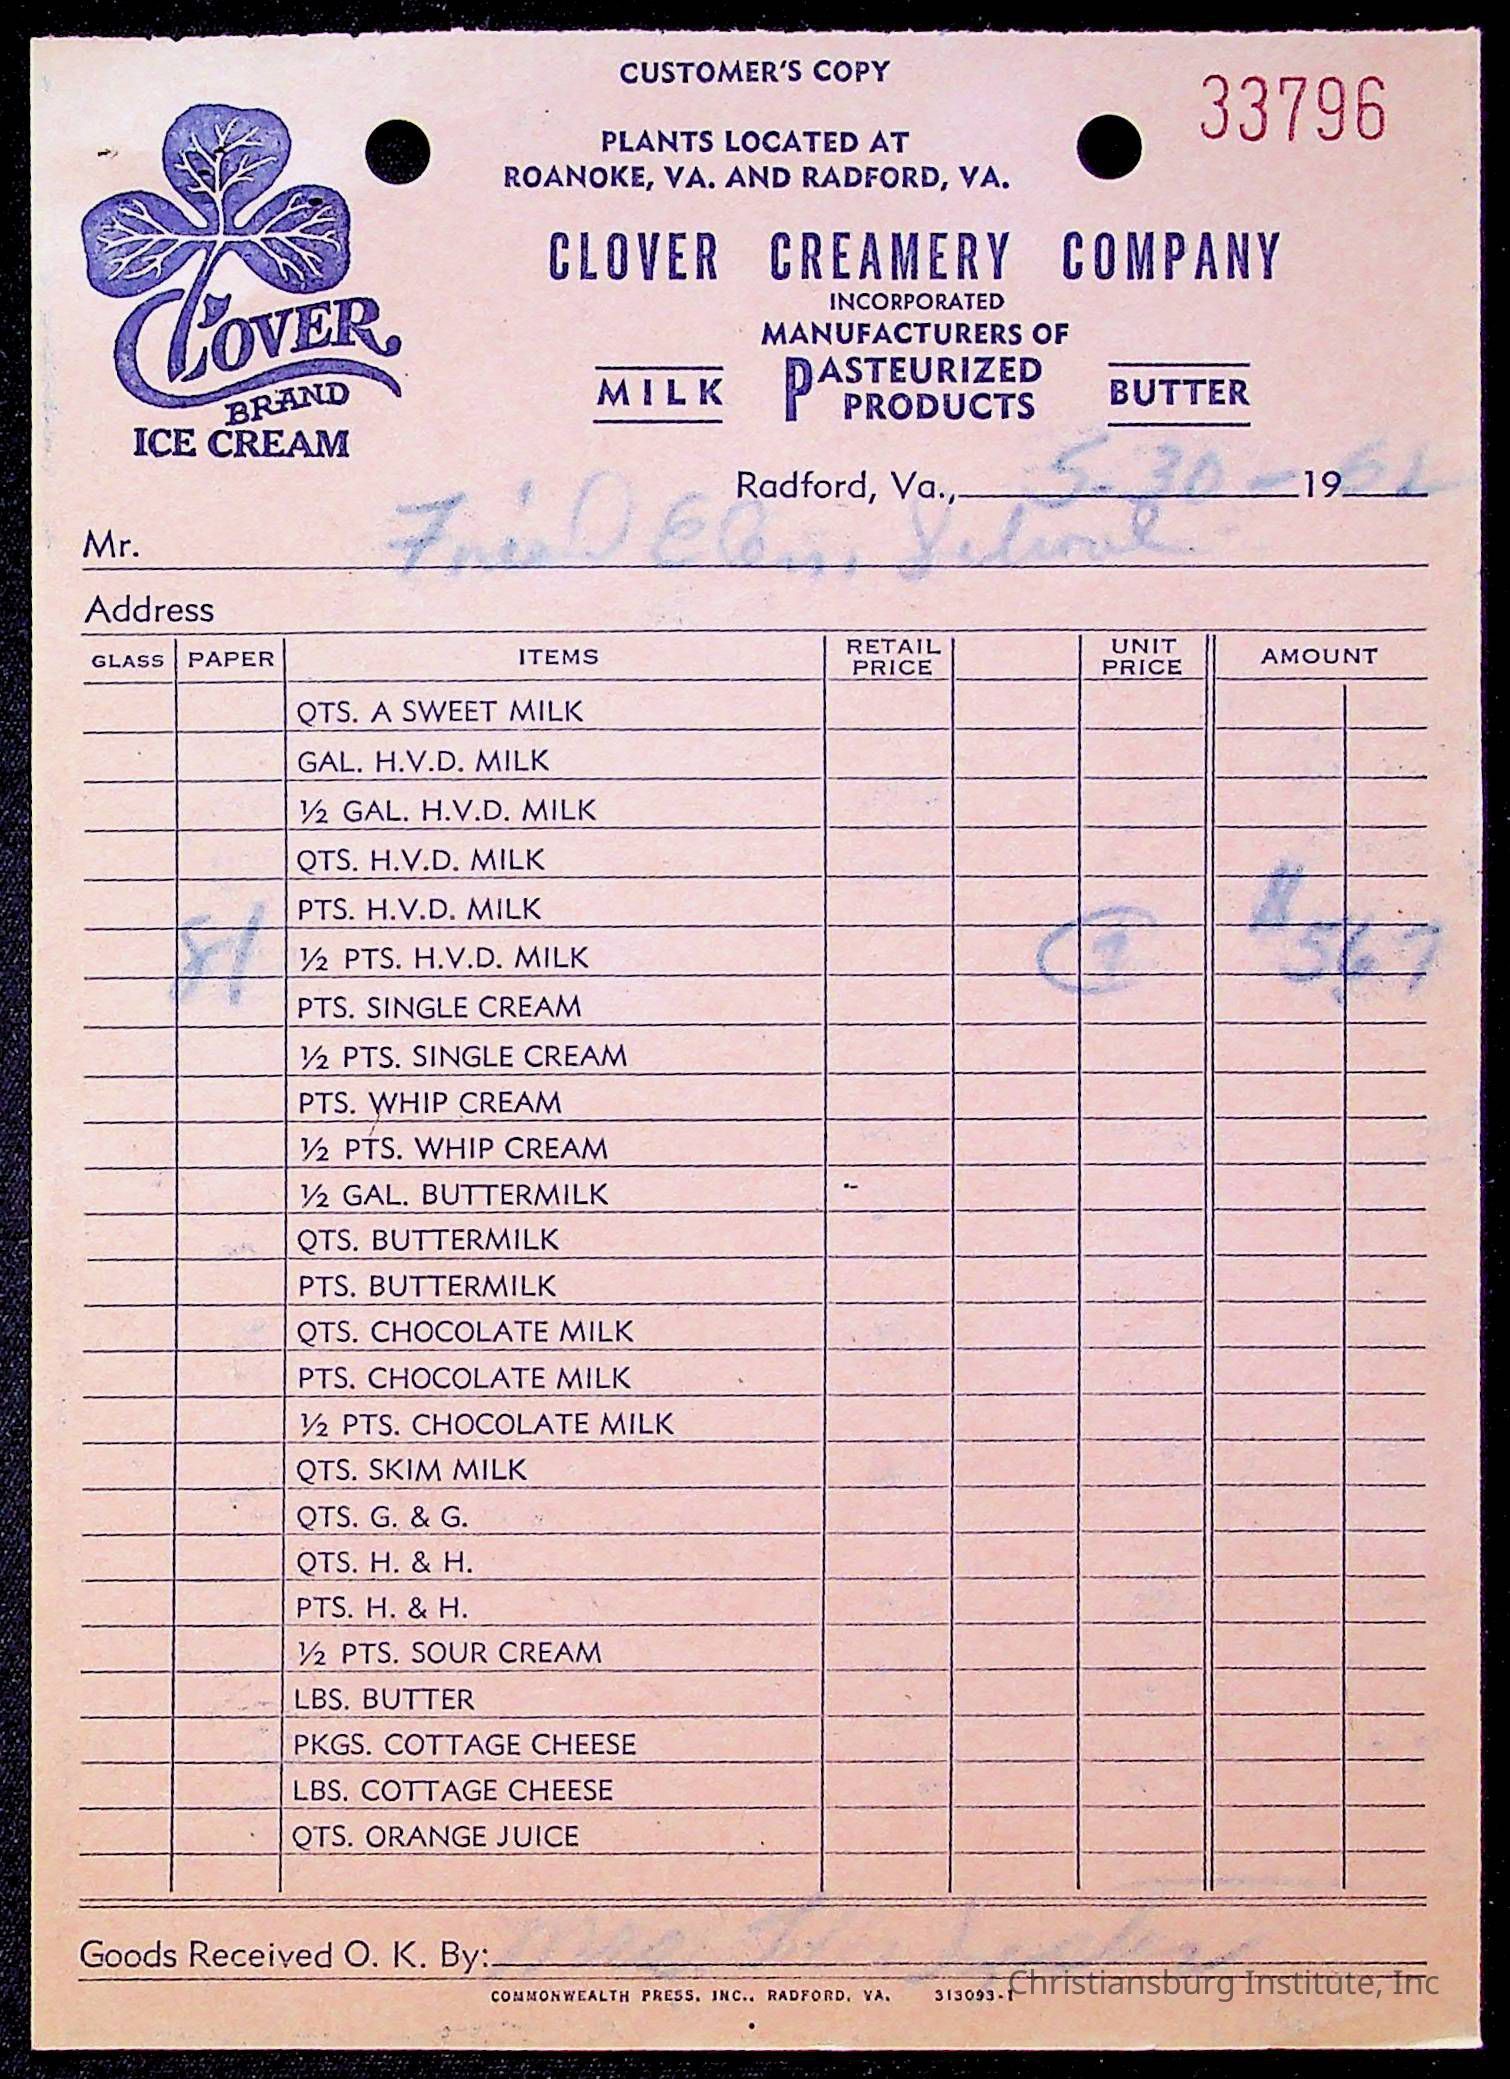 CUSTOMER'S COPY
33796
PLANTS LOCATED AT
ROANOKE, VA. AND RADFORD, VA.
CLOVER CREAMERY COMPANY
INCORPORATED
MANUFACTURERS OF
MILK PASTEURIZED PRODUCTS BUTTER
CLOVER
BRAND
ICE CREAM
Radford, Va., 5-30-1962
Mr. Friend Elem. School
Address
GLASS PAPER ITEMS RETAIL PRICE UNIT PRICE AMOUNT
QTS. A SWEET MILK
GAL. H.V.D. MILK
½ GAL. H.V.D. MILK
QTS. H.V.D. MILK
PTS. H.V.D. MILK
81 ½ PTS. H.V.D. MILK 7 $ 567
PTS. SINGLE CREAM
½ PTS. SINGLE CREAM
PTS. WHIP CREAM
½ PTS. WHIP CREAM
½ GAL. BUTTERMILK
QTS. BUTTERMILK
PTS. BUTTERMILK
QTS. CHOCOLATE MILK
PTS. CHOCOLATE MILK
½ PTS. CHOCOLATE MILK
QTS. SKIM MILK
QTS. G. & G.
QTS. H. & H.
PTS. H. & H.
½ PTS. SOUR CREAM
LBS. BUTTER
PKGS. COTTAGE CHEESE
LBS. COTTAGE CHEESE
QTS. ORANGE JUICE
Goods Received O. K. By:
COMMONWEALTH PRESS, INC., RADFORD, VA. 313093-1
Christiansburg Institute, Inc